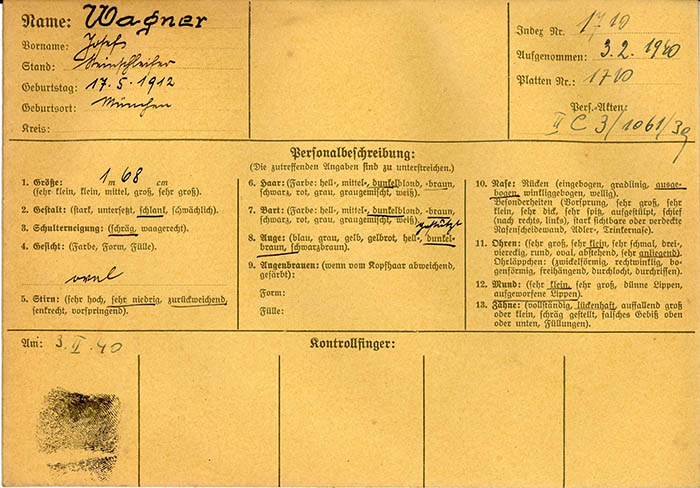 Name: Wagner
Vorname: Josef
Stand: Steinschleifer
Geburtstag: 17.5.1912
Geburtsort: München
Kreis:
Index Nr. 1710
Aufgenommen: 3.2.1940
Platten Nr.: 1710
Pers.-Akten:
II C 3/1061/39
Personalbeschreibung:
(Die zutreffenden Angaben sind zu unterstreichen.)
1. Größe: 1 m 68 cm
(sehr klein, klein, mittel, groß, sehr groß).
2. Gestalt: (stark, untersetzt, schlank, schwächlich).
3. Schulterneigung: (schräg, waagerecht).
4. Gesicht: (Farbe, Form, Fülle).
oval
5. Stirn: (sehr hoch, sehr niedrig, zurückweichend,
senkrecht, vorspringend).
6. Haar: (Farbe: hell-, mittel-, dunkelblond, -braun,
schwarz, rot, grau, graugemischt, weiß).
7. Bart: (Farbe: hell-, mittel-, dunkelblond, -braun,
schwarz, rot, grau, graugemischt, weiß).
gestutzt
8. Auge: (blau, grau, gelb, gelbrot, hell-, dunkel-
braun, schwarzbraun).
9. Augenbrauen: (wenn vom Kopfhaar abweichend,
gefärbt):
Form:
Fülle:
10. Nase: Rücken (eingebogen, gradlinig, ausge-
bogen, winkliggebogen, wellig).
Besonderheiten (Vorsprung, sehr groß, sehr
klein, sehr dick, sehr spitz, aufgestülpt, schief
(nach rechts, links), stark sichtbare oder verdeckte
Nasenscheidewand, Adler-, Trinkernase).
11. Ohren: (sehr groß, sehr klein, sehr schmal, drei-,
viereckig, rund, oval, abstehend, sehr anliegend)
Ohrläppchen: (zwickelförmig, rechtwinklig, bo-
genförmig, freihängend, durchlocht, durchrissen).
12. Mund: (sehr klein, sehr groß, dünne Lippen,
aufgeworfene Lippen).
13. Zähne: (vollständig, lückenhaft, auffallend groß
oder klein, schräg gestellt, falsches Gebiß oben
oder unten, Füllungen).
Am: 3.II.40
Kontrollfinger: